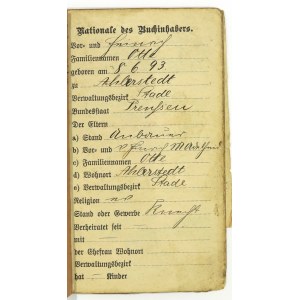 Nationale des Buchinhabers.
Vor- und Heinrich
Familiennamen Otto
geboren am 8 6. 93
zu Ahlerstedt
Verwaltungsbezirk Stade
Bundesstaat Preußen
Der Eltern
a) Stand Anbauer
b) Vor- und
c) Familiennamen Otte
d) Wohnort Ahlerstedt
e) Verwaltungsbezirk Stade
Religion ev
Stand oder Gewerbe Knecht
Verheiratet seit
mit
der Ehefrau Wohnort
Verwaltungsbezirk
hat — Kinder